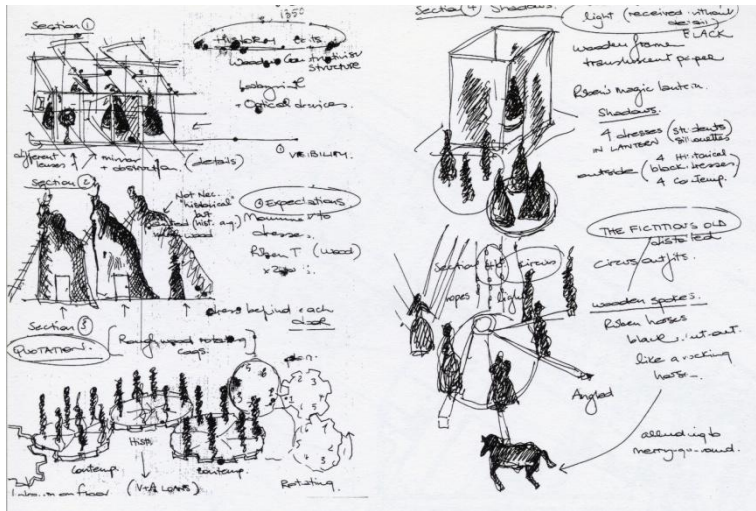 1350
Section 1
HISTORICAL
Wooden Constructivist
STRUCTURE
labyrinth
+ Optical devices.
different lenses
mirror
+ distortion
(details)
① VISIBILITY.
Section 2
Not Nec. "historical"
but
wood
② Expectations
Monument to
dresses.
Riben T (Wood)
dress behind each
door
Section 3
QUOTATION
Rough wood rotating
cogs.
plan.
Hist.
Contemp.
Contemp.
on floor
(V+A LOANS)
Rotating.
Section 4 Shadows.
light (received without
detail)
BLACK
wooden frame
translucent paper
Riben's magic lantern.
Shadows.
4 dresses (students)
IN LANTERN silhouettes
4 Historical
outside (black dresses
4 Contemp.
THE FICTITIOUS OLD
distorted
circus outfits.
Section circus
ropes
light
wooden spokes.
Riben horses
black cut out
like a rocking
horse
Angled
alluding to
merry-go-round.